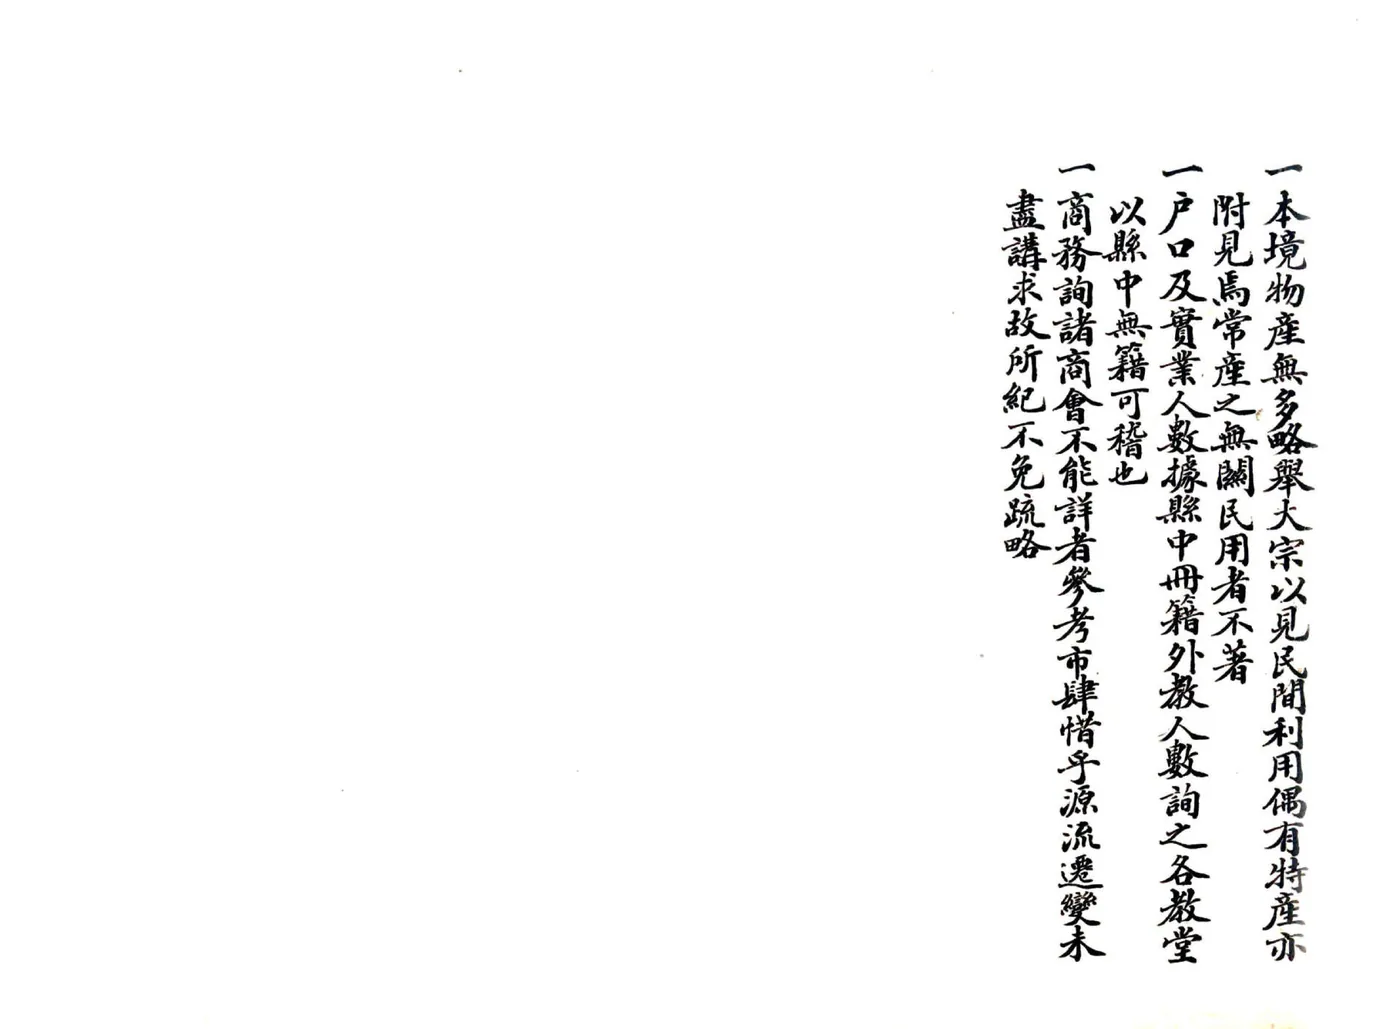 一本境物産無多略舉大宗以見民間利用偶有特産亦
附見焉常産之無關民用者不著
一户口及實業人數據縣中冊籍外教人數詢之各教堂
以縣中無籍可稽也
一商務詢諸商會不能詳者參考市肆惜乎源流遷變未
盡講求故所紀不免疏略